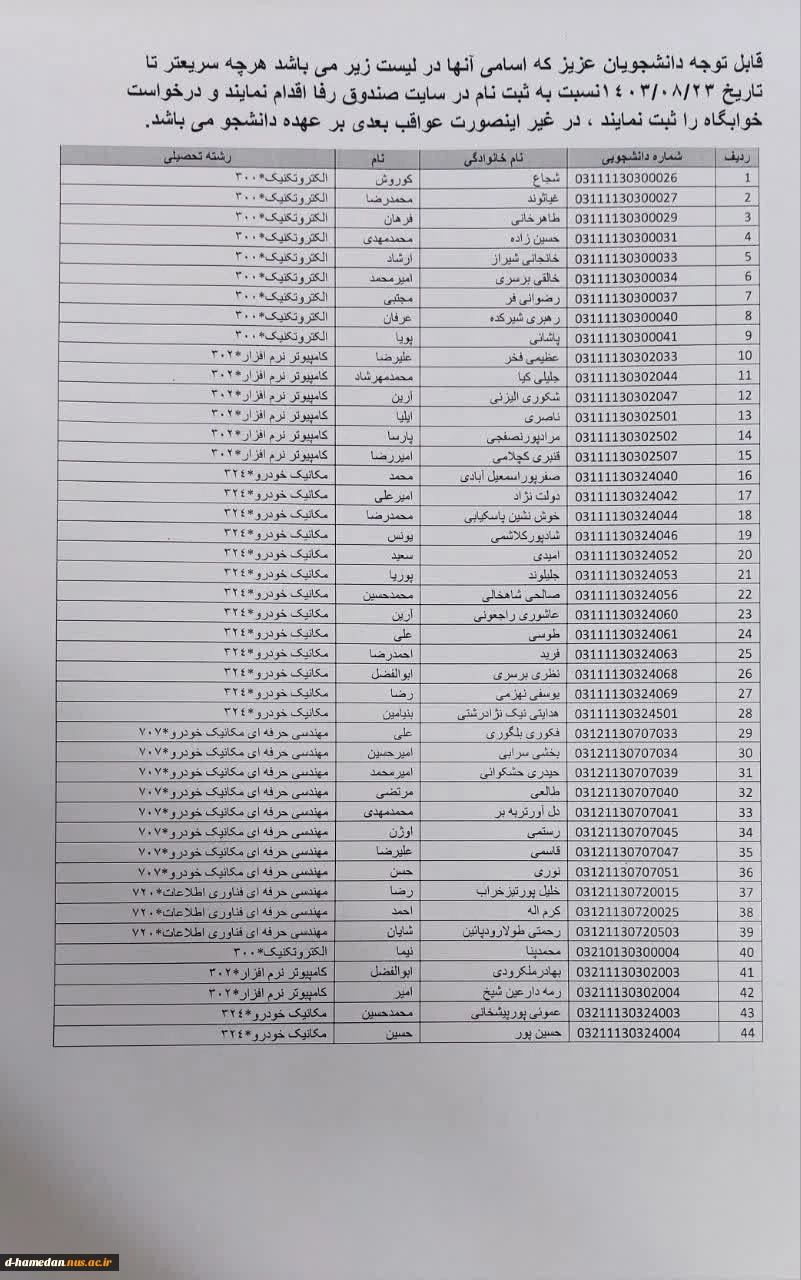 قابل توجه دانشجویان عزیز که اسامی آنها در لیست زیر می باشد هرچه سریعتر تا
تاریخ ۱٤۰۳/۰۸/۲۳نسبت به ثبت نام در سایت صندوق رفا اقدام نمایند و درخواست
خوابگاه را ثبت نمایند ، در غیر اینصورت عواقب بعدی بر عهده دانشجو می باشد.
ردیف شماره دانشجویی نام خانوادگی نام رشته تحصیلی
1 03111130300026 شجاع کوروش الکتروتکنیک*۳۰۰
2 03111130300027 غیاثوند محمدرضا الکتروتکنیک*۳۰۰
3 03111130300029 طاهرخانی فرهان الکتروتکنیک*۳۰۰
4 03111130300031 حسین زاده محمدمهدی الکتروتکنیک*۳۰۰
5 03111130300033 خانجانی شیراز ارشاد الکتروتکنیک*۳۰۰
6 03111130300034 خالقی برسری امیرمحمد الکتروتکنیک*۳۰۰
7 03111130300037 رضوانی فر مجتبی الکتروتکنیک*۳۰۰
8 03111130300040 رهبری شیرکده عرفان الکتروتکنیک*۳۰۰
9 03111130300041 پاشانی پویا الکتروتکنیک*۳۰۰
10 03111130302033 عظیمی فخر علیرضا کامپیوتر نرم افزار*۳۰۲
11 03111130302044 جلیلی کیا محمدمهرشاد کامپیوتر نرم افزار*۳۰۲
12 03111130302047 شکوری الیزئی آرین کامپیوتر نرم افزار*۳۰۲
13 03111130302501 ناصری ایلیا کامپیوتر نرم افزار*۳۰۲
14 03111130302502 مرادپورنصفجی پارسا کامپیوتر نرم افزار*۳۰۲
15 03111130302507 قنبری کچلامی امیررضا کامپیوتر نرم افزار*۳۰۲
16 03111130324040 صفرپوراسمعیل آبادی محمد مکانیک خودرو*۳۲٤
17 03111130324042 دولت نژاد امیرعلی مکانیک خودرو*۳۲٤
18 03111130324044 خوش نشین پاسکیابی محمدرضا مکانیک خودرو*۳۲٤
19 03111130324046 شادپورکلاشمی یونس مکانیک خودرو*۳۲٤
20 03111130324052 امیدی سعید مکانیک خودرو*۳۲٤
21 03111130324053 جلیلوند پوریا مکانیک خودرو*۳۲٤
22 03111130324056 صالحی شاهخالی محمدحسین مکانیک خودرو*۳۲٤
23 03111130324060 عاشوری راجعونی آرین مکانیک خودرو*۳۲٤
24 03111130324061 طوسی علی مکانیک خودرو*۳۲٤
25 03111130324063 فرید احمدرضا مکانیک خودرو*۳۲٤
26 03111130324068 نظری برسری ابوالفضل مکانیک خودرو*۳۲٤
27 03111130324069 یوسفی نهزمی رضا مکانیک خودرو*۳۲٤
28 03111130324501 هدایتی نیک نژادرشتی بنیامین مکانیک خودرو*۳۲٤
29 03121130707033 فکوری بلگوری علی مهندسی حرفه ای مکانیک خودرو*۷۰۷
30 03121130707034 بخشی سرابی امیرحسین مهندسی حرفه ای مکانیک خودرو*۷۰۷
31 03121130707039 حیدری حشکوائی امیرمحمد مهندسی حرفه ای مکانیک خودرو*۷۰۷
32 03121130707040 طالعی مرتضی مهندسی حرفه ای مکانیک خودرو*۷۰۷
33 03121130707041 دل آورتربه بر محمدمهدی مهندسی حرفه ای مکانیک خودرو*۷۰۷
34 03121130707045 رستمی اوژن مهندسی حرفه ای مکانیک خودرو*۷۰۷
35 03121130707047 قاسمی علیرضا مهندسی حرفه ای مکانیک خودرو*۷۰۷
36 03121130707051 نوری حسن مهندسی حرفه ای مکانیک خودرو*۷۰۷
37 03121130720015 خلیل پورتیزخراب رضا مهندسی حرفه ای فناوری اطلاعات*۷۲۰
38 03121130720025 کرم اله احمد مهندسی حرفه ای فناوری اطلاعات*۷۲۰
39 03121130720503 رحمتی طولارودپائین شایان مهندسی حرفه ای فناوری اطلاعات*۷۲۰
40 03210130300004 محمدپنا نیما الکتروتکنیک*۳۰۰
41 03211130302003 بهادرملکرودی ابوالفضل کامپیوتر نرم افزار*۳۰۲
42 03211130302004 رمه دارعین شیخ امیر کامپیوتر نرم افزار*۳۰۲
43 03211130324003 عموئی پورپیشخانی محمدحسین مکانیک خودرو*۳۲٤
44 03211130324004 حسین پور حسین مکانیک خودرو*۳۲٤
d-hamedan.nus.ac.ir